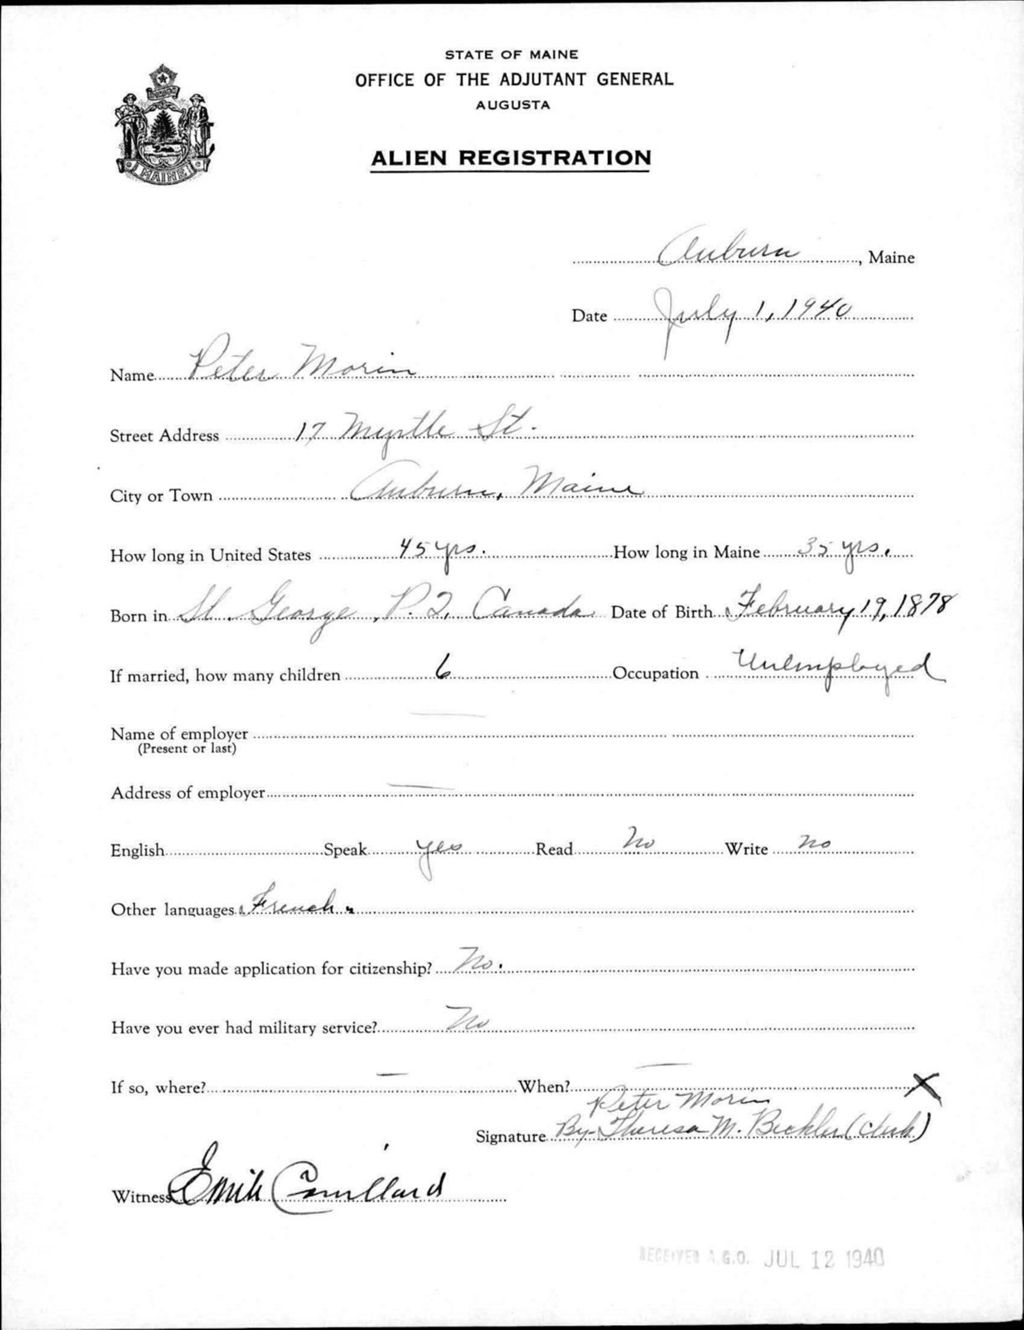 STATE OF MAINE
OFFICE OF THE ADJUTANT GENERAL
AUGUSTA
ALIEN REGISTRATION
MAINE
Auburn, Maine
Date July 1, 1940
Name Peter Morin
Street Address 17 Myrtle St.
City or Town Auburn, Maine
How long in United States 45 yrs. How long in Maine 35 yrs.
Born in St. George, P.Q. Canada Date of Birth February 19, 1878
If married, how many children 6 Occupation Unemployed
Name of employer —
(Present or last)
Address of employer —
English Speak yes Read No Write No
Other languages French
Have you made application for citizenship? No.
Have you ever had military service? No
If so, where? — When? — X
Peter Morin
Signature By Theresa M. Beckler (clerk)
Witness Emile Couillard
RECEIVED A.G.O. JUL 12 1940